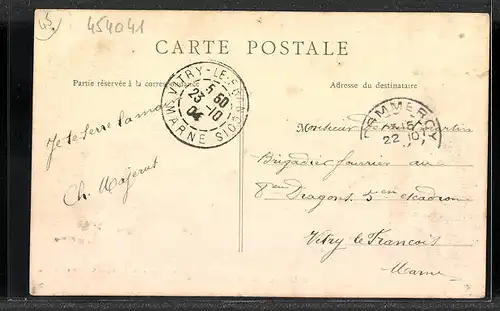 45
454041
CARTE POSTALE
Partie réservée à la correspondance
Adresse du destinataire
VITRY-LE-FRANCOIS
5 50
23 -10
04
MARNE
COMMERCY
22 10
Je te serre la main
Ch. Majerut
Monsieur
Brigadier fourrier au
8eme Dragons 5em escadron
Vitry le Francois
Marne